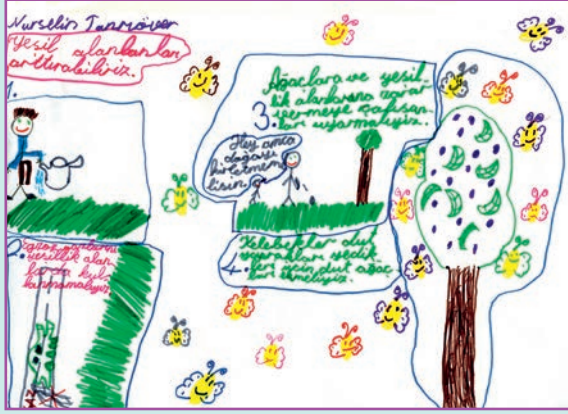 Nurselin Tanrıöver
Yeşil alanlanları
arttırabiliriz.
1.
2.
yeşillik alan-
larda kul-
lanmamalıyız.
3.
Ağaçlara ve yeşil-
lik alanlarına zarar
vermeye çalışan-
ları uyarmalıyız.
Hey amca
doğayı
kirletmeme
lisin.
4.
Kelebekler dut
yaprakları yedik
leri için dut ağaç-
ları ekmeliyiz.